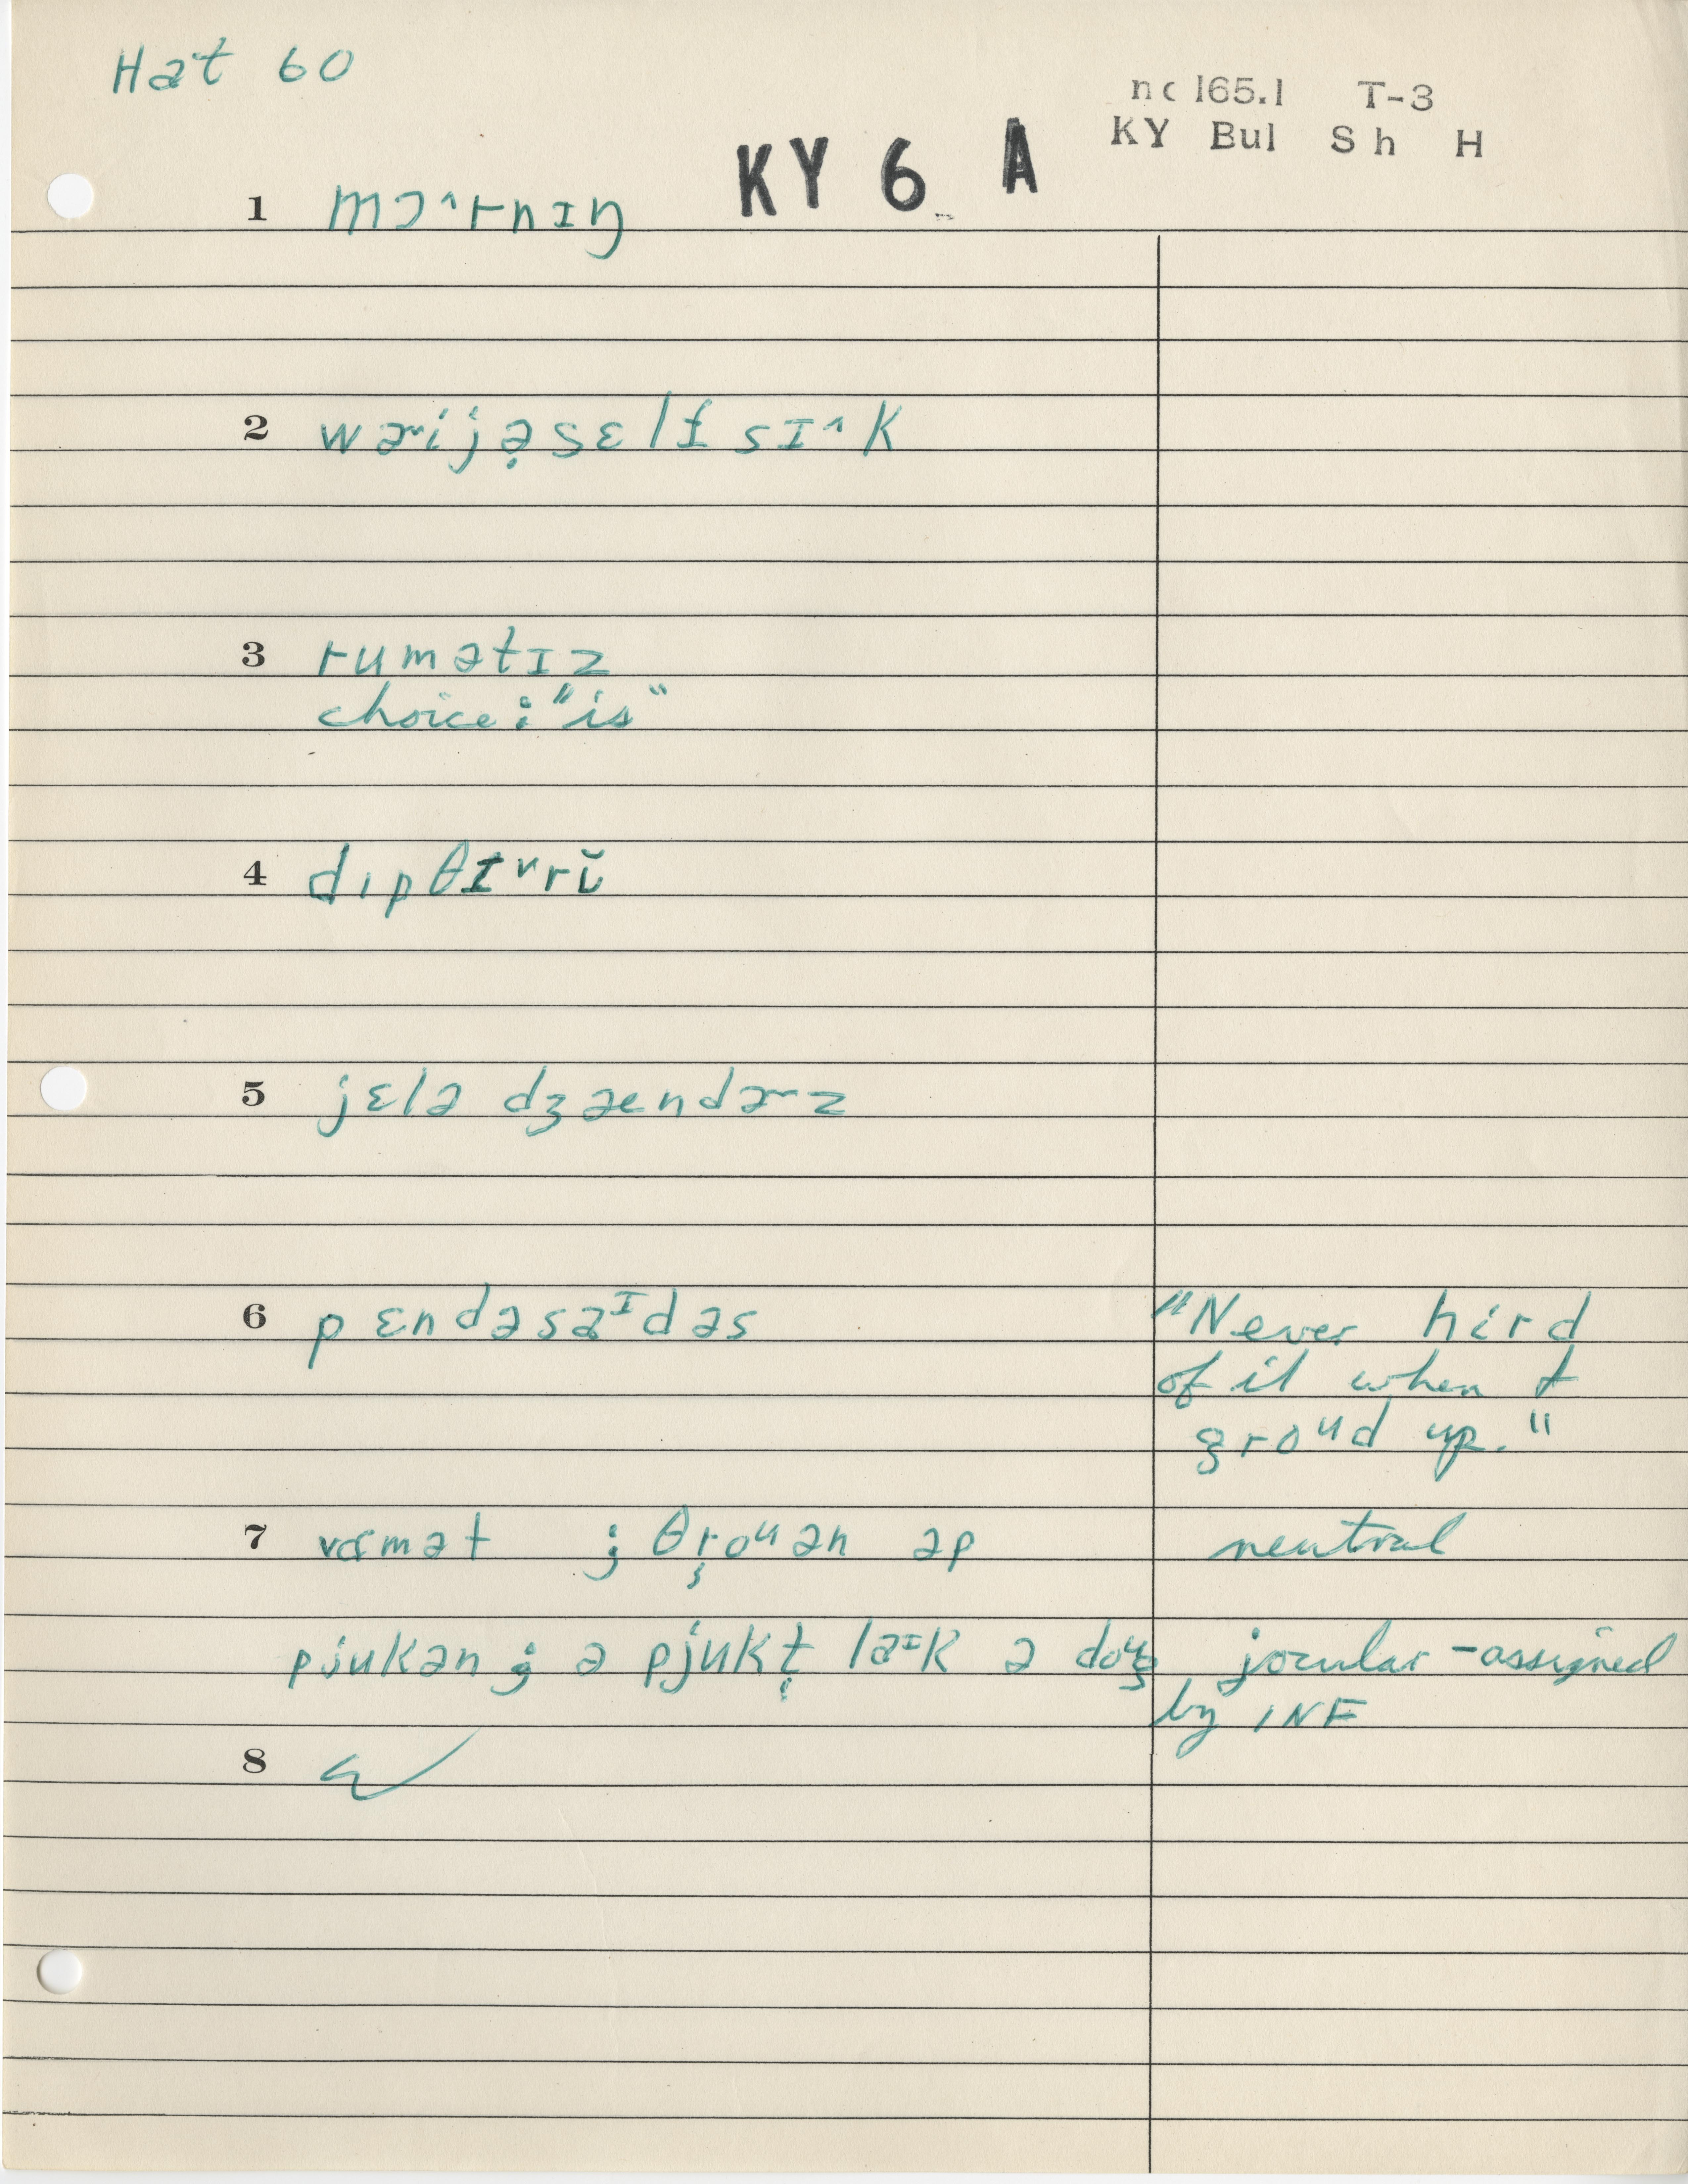 Hat 60
nc 165.1 T-3
KY Bul Sh H
KY 6 A
1 mɔ˄rnɪŋ
2 wɚijə̣sɛlf sɪ˄k
3 rumətɪz
choice: "is"
4 dɪpθɪ˅rĭ
5 jɛlə dʒaendɚz
6 pɛndəsaᶦdəs "Never hird
of it when I
groᵘd up."
7 vɑmət ; θr̥oᵘən əp neutral
pjukən ; ə pjukt̬ laᶦk ə doᵘg jocular - assigned
by INF
8